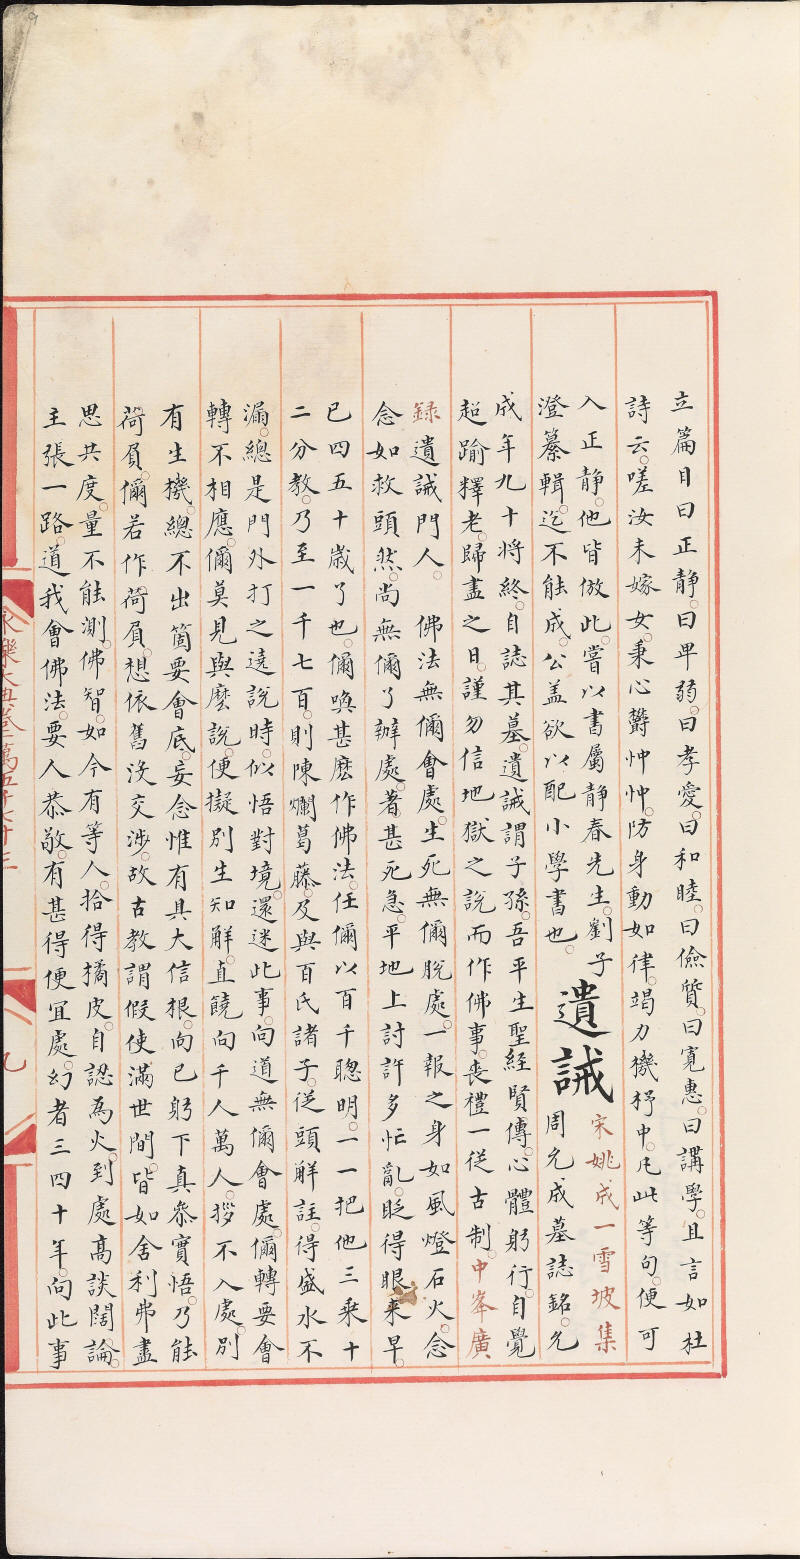 立篇目曰正静。曰卑弱。曰孝愛。曰和睦。曰儉質。曰寛惠。曰講學。且言如杜
詩云。嗟汝未嫁女。秉心鬱忡忡。防身動如律。竭力機杼中。凡此等句。便可
入正静。他皆倣此。嘗以書屬静春先生。劉子
澄纂輯。迄不能成。公盖欲以配小學書也。
遺誡
宋姚成一雪坡集
周允成墓誌銘。允
成年九十將終。自誌其墓。遺誡謂子孫。吾平生聖經賢傳。心體躬行。自覺
超踰釋老。歸盡之日。謹勿信地獄之說而作佛事。喪禮一從古制。中峯廣
録遺誡門人。 佛法無儞會處。生死無儞脫處。一報之身如風燈石火。念
念如救頭然。尚無儞了辦處。著甚死急。平地上討許多忙亂。眨得眼来早。
已四五十歳了也。儞喚甚麽作佛法。任儞以百千聰明。一一把他三乘十
二分教。乃至一千七百。則陳爛葛藤。及與百氏諸子。從頭觧註。得盛水不
漏。總是門外打之遶說時。似悟對境。還迷此事。向道無儞會處。儞轉要會
轉不相應。儞莫見與麽說。便擬別生知觧。直饒向千人萬人。拶不入處。別
有生機。總不出箇要會底。妄念惟有具大信根。向己躬下真叅實悟。乃能
荷負。儞若作荷負。想依舊沒交涉。故古教謂假使滿世間。皆如舍利弗盡
思共度。量不能測。佛智。如今有等人。拾得橘皮。自認為火。到處高談闊論。
主張一路。道我會佛法。要人恭敬。有甚得便宜處。幻者三四十年。向此事
永樂大典卷
九